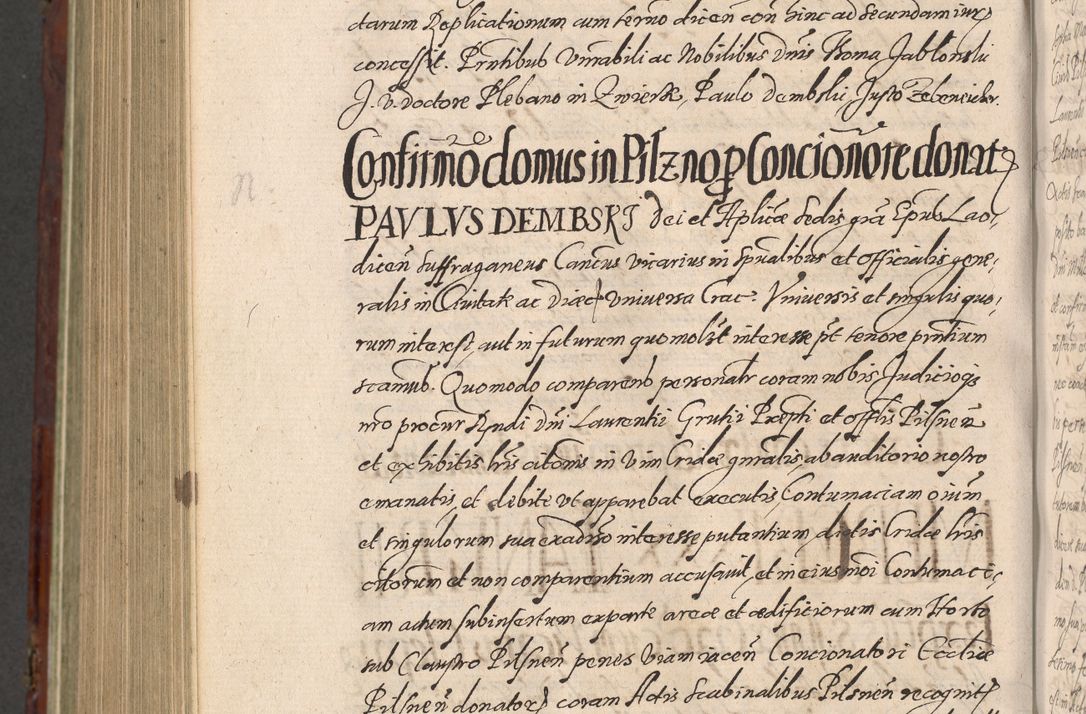 ctarum Replicationum cum termo dicen con hinc ad secundam iurẹ
concessit. Prntibus Vnrabili ac Nobilibus Dnis Thoma Jablonski
J. V. doctore Plebano in Zwiersk, Paulo Dembski, Justo
Confirmõ domus in Pilzno p Concionõre donatȩ
PAVLVS DEMBSKI Dei et Aplicæ Sedis grã Epus Lao-
dicen̄ Suffraganeus Cancus vicarius in spualibus et officialis gene-
ralis in Civitate ac Diæc Vniversa Crac. Vniversis et singulis quo-
rum interest, aut in futurum quomolt interesse pt tenore prntium
scamus. Quomodo comparens personalr coram nobis Judicioqȝ
nro procur Rndi Dni Laurentii Grutii Præpti et offlis Pilsnen̄
et exhibitis lris citonis in vim Cridæ gnralis, ab auditorio nostro
emanatis, et debite ut apparebat executis, Contumaciam oium
et singulorum sua exadiuso interesse putantium dictis Cridæ lris
citorum et non comparentium accusavit, et in eiusmoi Contumaci-
am actum subinsertum exparte areæ et ædificiorum cum Horto
sub Claustro Pilsnen̄ penes viam iacen̄ Concionatori Eccliæ
Pilsnen̄ donatorȩ coram Actis Scabinalibus Pilsnen̄ recognitȩ